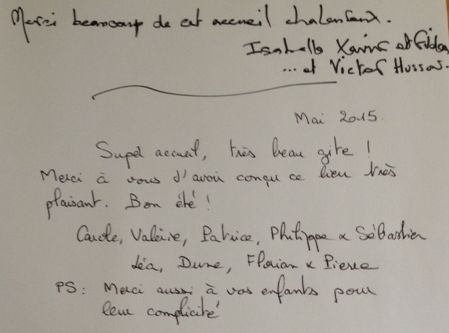 Merci beaucoup de cet accueil chaleureux.
Isabelle Xavier et
... et Victor
Mai 2015
Super accueil, très beau gîte !
Merci à vous d'avoir conçu ce lieu très
plaisant. Bon été !
Carole, Valérie, Patrice, Philippe & Sébastien
Léa, Dune, Florian & Pierre
PS : Merci aussi à vos enfants pour
leur complicité